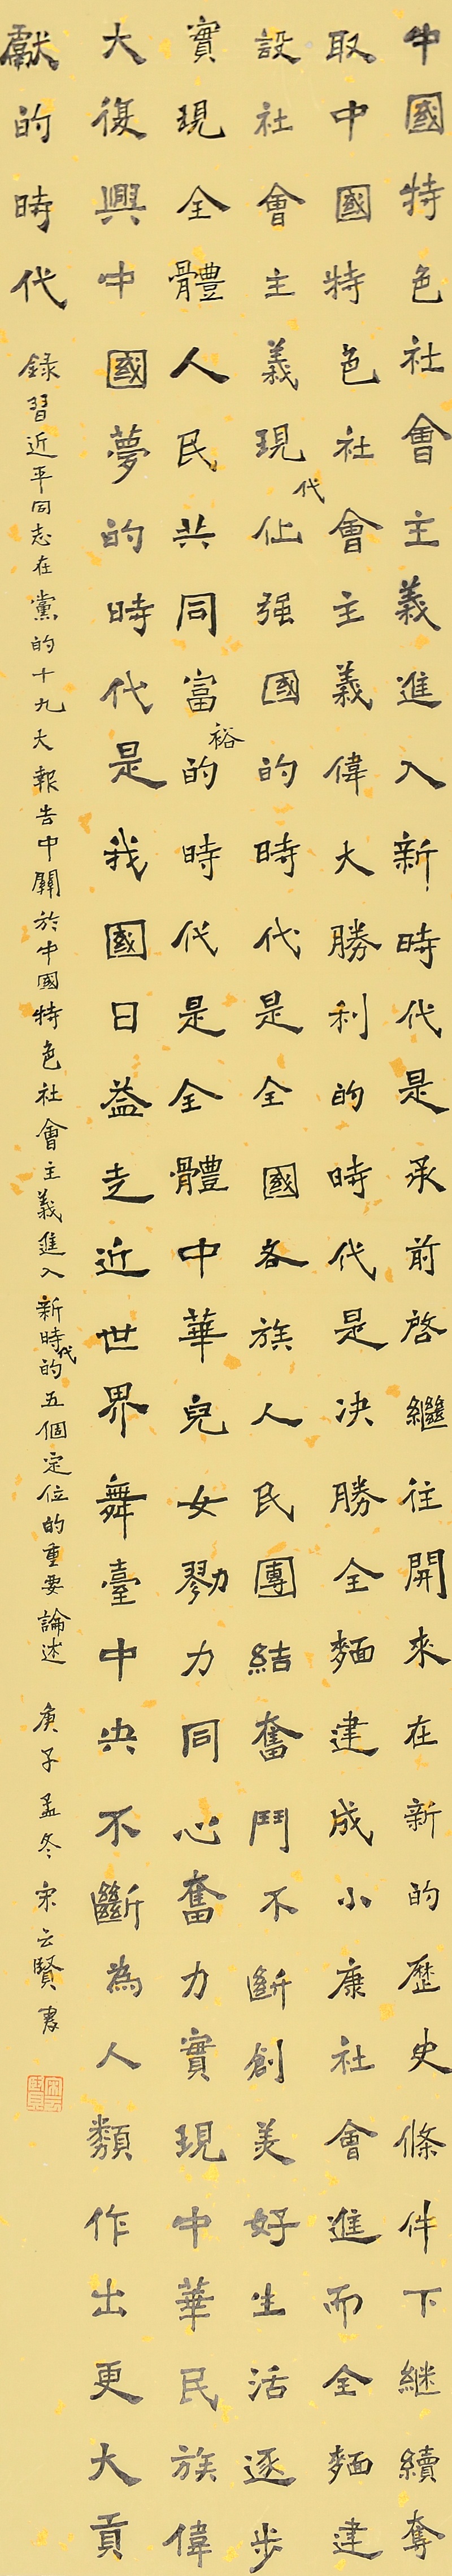 中國特色社會主義進入新時代是承前啓繼往開來在新的歷史條件下継續奪
取中國特色社會主義偉大勝利的時代是决勝全麵建成小康社會進而全麵建
設社會主義現代化强國的時代是全國各族人民團結奮鬥不断創美好生活逐步
實現全體人民共同富裕的時代是全體中華兒女勠力同心奮力實現中華民族偉
大復興中國夢的時代是我國日益走近世界舞臺中央不斷為人類作出更大貢
獻的時代
録習近平同志在黨的十九大報告中關於中國特色社會主義進入新時代的五個定位的重要論述 庚子孟冬宋云賢書